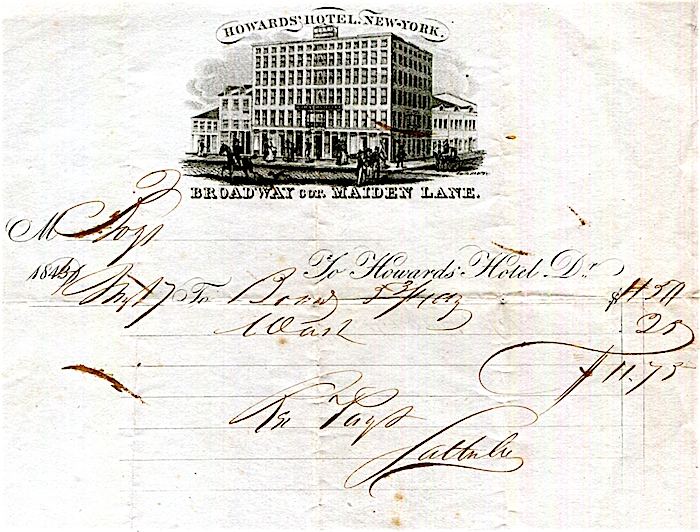 HOWARDS' HOTEL. NEW-YORK.
BROADWAY COR. MAIDEN LANE.
M
To Howards' Hotel. Dr
184 To Board 5 3/4 day $11.50
Wash 25
$11.75
Rec Payt